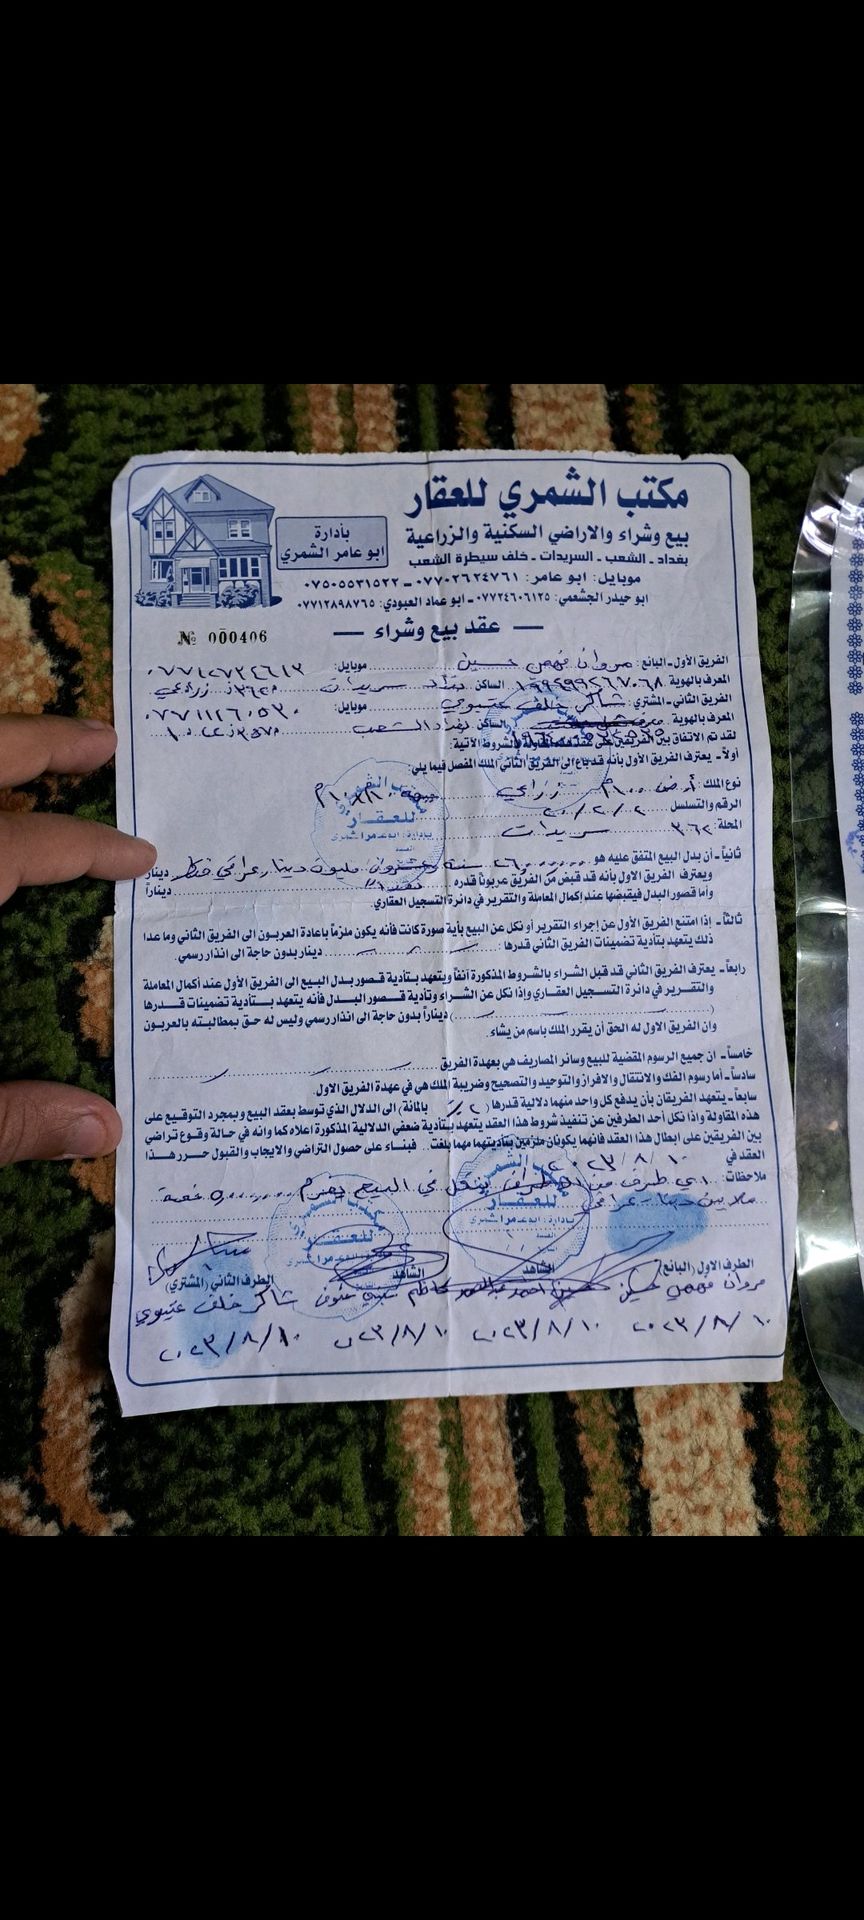 مكتب الشمري للعقار
بيع وشراء والاراضي السكنية والزراعية
بأدارة
ابو عامر الشمري
بغداد - الشعب - السريدات - خلف سيطرة الشعب
موبايل: ابو عامر: ٠٧٧٠٢٦٢٤٧٦١ - ٠٧٥٠٥٥٣١٥٢٢
ابو حيدر الجشعمي: ٠٧٧٢٤٦٠٦١٢٥ - ابو عماد العبودي: ٠٧٧١٢٨٩٨٧٦٥
№ 000406
— عقد بيع وشراء —
الفريق الأول - البائع: مروان فهمي حسين موبايل:
المعرف بالهوية الساكن بغداد سريدات زراعي
الفريق الثاني - المشتري: شاكر خلف عتيوي موبايل:
المعرف بالهوية الساكن بغداد الشعب
لقد تم الاتفاق بين الفريقين على عقد هذه المقاولة بالشروط الآتية:
أولاً - يعترف الفريق الأول بأنه قد باع الى الفريق الثاني الملك المفصل فيما يلي:
نوع الملك: أرض ١٠٠م زراعي
الرقم والتسلسل
المحلة: ٣٦٢ سريدات
ثانياً - أن بدل البيع المتفق عليه هو ٢٦,٠٠٠,٠٠٠ ستة وعشرون مليون دينار عراقي فقط دينار
ويعترف الفريق الأول بأنه قد قبض من الفريق عربوناً قدره
وأما قصور البدل فيقبضها عند إكمال المعاملة والتقرير في دائرة التسجيل العقاري. ديناراً
ثالثاً - إذا امتنع الفريق الأول عن إجراء التقرير أو نكل عن البيع بأية صورة كانت فأنه يكون ملزماً باعادة العربون الى الفريق الثاني وما عدا
ذلك يتعهد بتأدية تضمينات الفريق الثاني قدرها: دينار بدون حاجة الى انذار رسمي.
رابعاً - يعترف الفريق الثاني قد قبل الشراء بالشروط المذكورة آنفاً ويتعهد بتأدية قصور بدل البيع الى الفريق الأول عند أكمال المعاملة
والتقرير في دائرة التسجيل العقاري وإذا نكل عن الشراء وتادية قصور البدل فأنه يتعهد بتأدية تضمينات قدرها
( ) ديناراً بدون حاجة الى انذار رسمي وليس له حق بمطالبته بالعربون
وان الفريق الاول له الحق أن يقرر الملك باسم من يشاء.
خامساً - ان جميع الرسوم المقضية للبيع وسائر المصاريف هي بعهدة الفريق
سادساً - أما رسوم الفك والانتقال والافراز والتوحيد والتصحيح وضريبة الملك هي في عهدة الفريق الاول.
سابعاً - يتعهد الفريقان بأن يدفع كل واحد منهما دلالية قدرها (٢٪ بالمائة) الى الدلال الذي توسط بعقد البيع وبمجرد التوقيع على
هذه المقاولة واذا نكل أحد الطرفين عن تنفيذ شروط هذا العقد يتعهد بتأدية ضعفي الدلالية المذكورة اعلاه كما وانه في حالة وقوع تراضي
بين الفريقين على ابطال هذا العقد فانهما يكونان ملزمين بتأديتهما مهما بلغت. فبناء على حصول التراضي والايجاب والقبول حرر هذا
العقد في ٢٠٢٣/٨/١٠
ملاحظات: اي طرف من الاطراف ينكل في البيع يغرم ٥,٠٠٠,٠٠٠ خمسة
ملايين دينار عراقي
الطرف الاول (البائع) الشاهد الشاهد الطرف الثاني (المشتري)
مروان فهمي حسين شاكر خلف عتيوي
٢٠٢٣/٨/١٠ ٢٠٢٣/٨/١٠ ٢٠٢٣/٨/١٠ ٢٠٢٣/٨/١٠